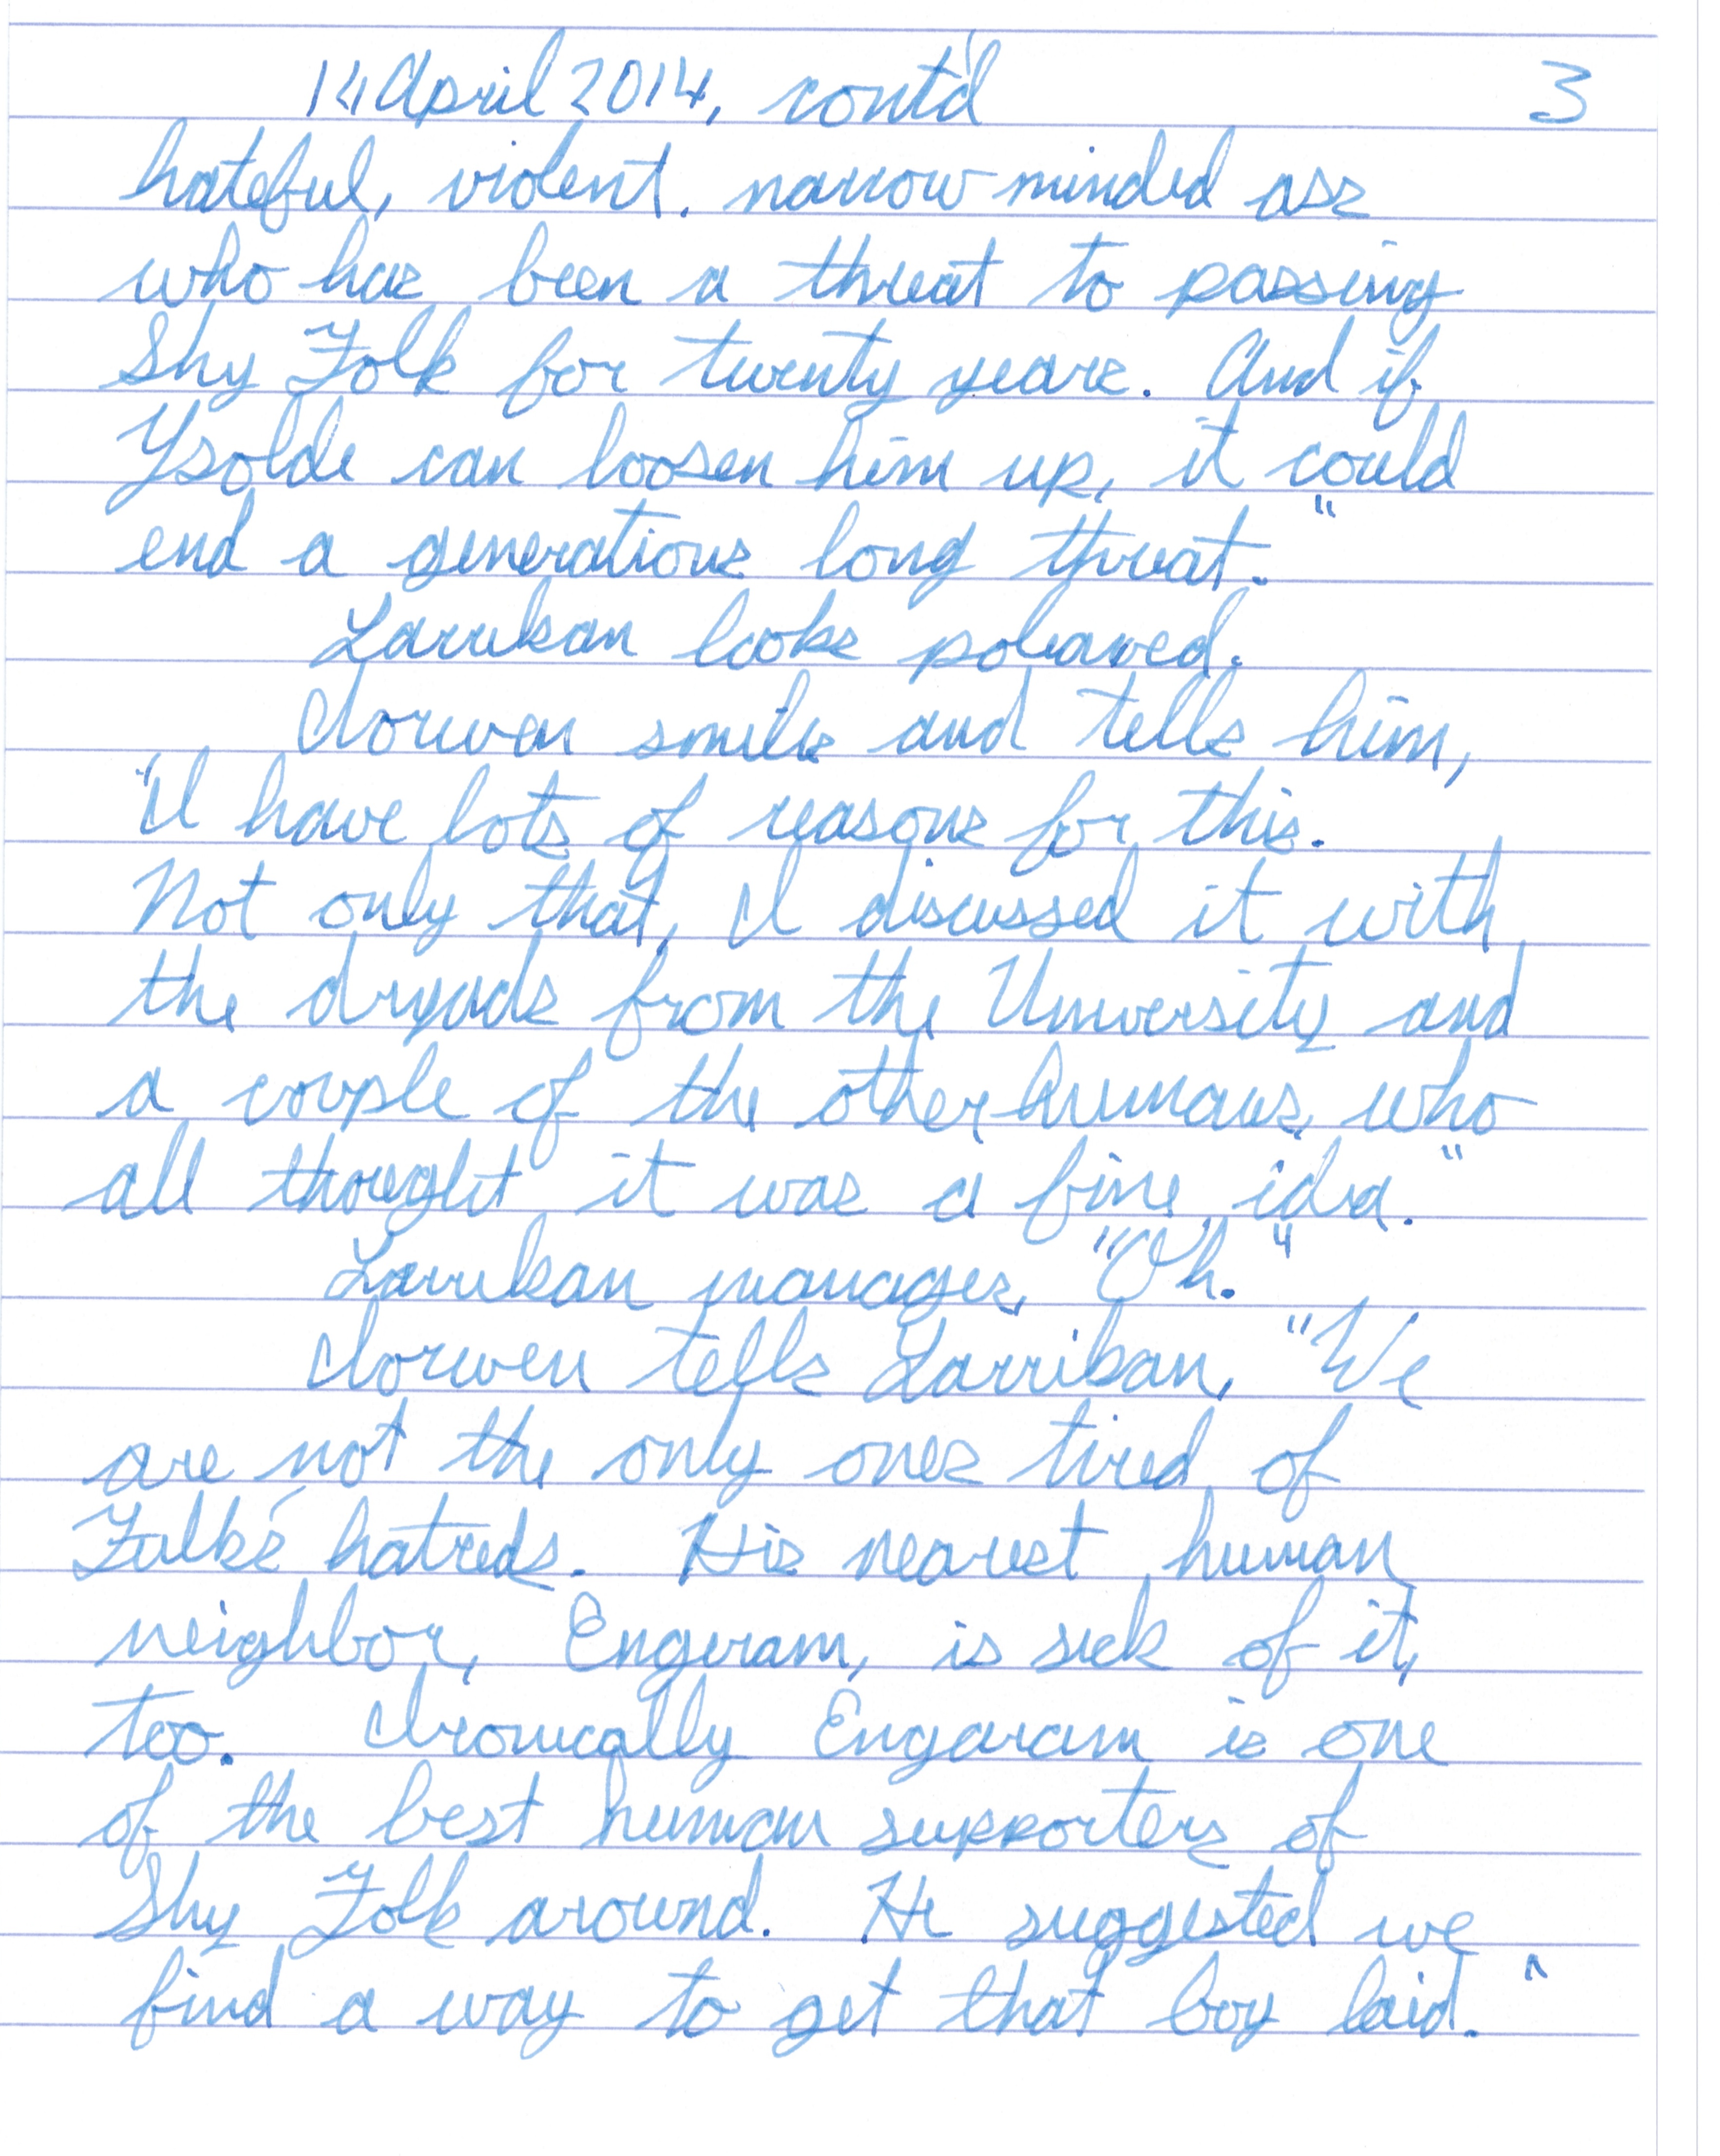 14 April 2014, cont'd 3
hateful, violent, narrow minded ass
who has been a threat to passing
Shy Folk for twenty years. And if
Ysolde can loosen him up, it could
end a generations long threat."
Larrikan looks poleaxed.
Iorwen smiles and tells him,
"I have lots of reasons for this.
Not only that, I discussed it with
the dryads from the University and
a couple of the other humans, who
all thought it was a fine idea."
Larrikan manages, "Oh."
Iorwen tells Larrikan, "We
are not the only ones tired of
Falks' hatreds. His nearest human
neighbor, Engeram, is sick of it,
too. Ironically Engaram is one
of the best human supporters of
Shy Folk around. He suggested we
find a way to get that boy laid."